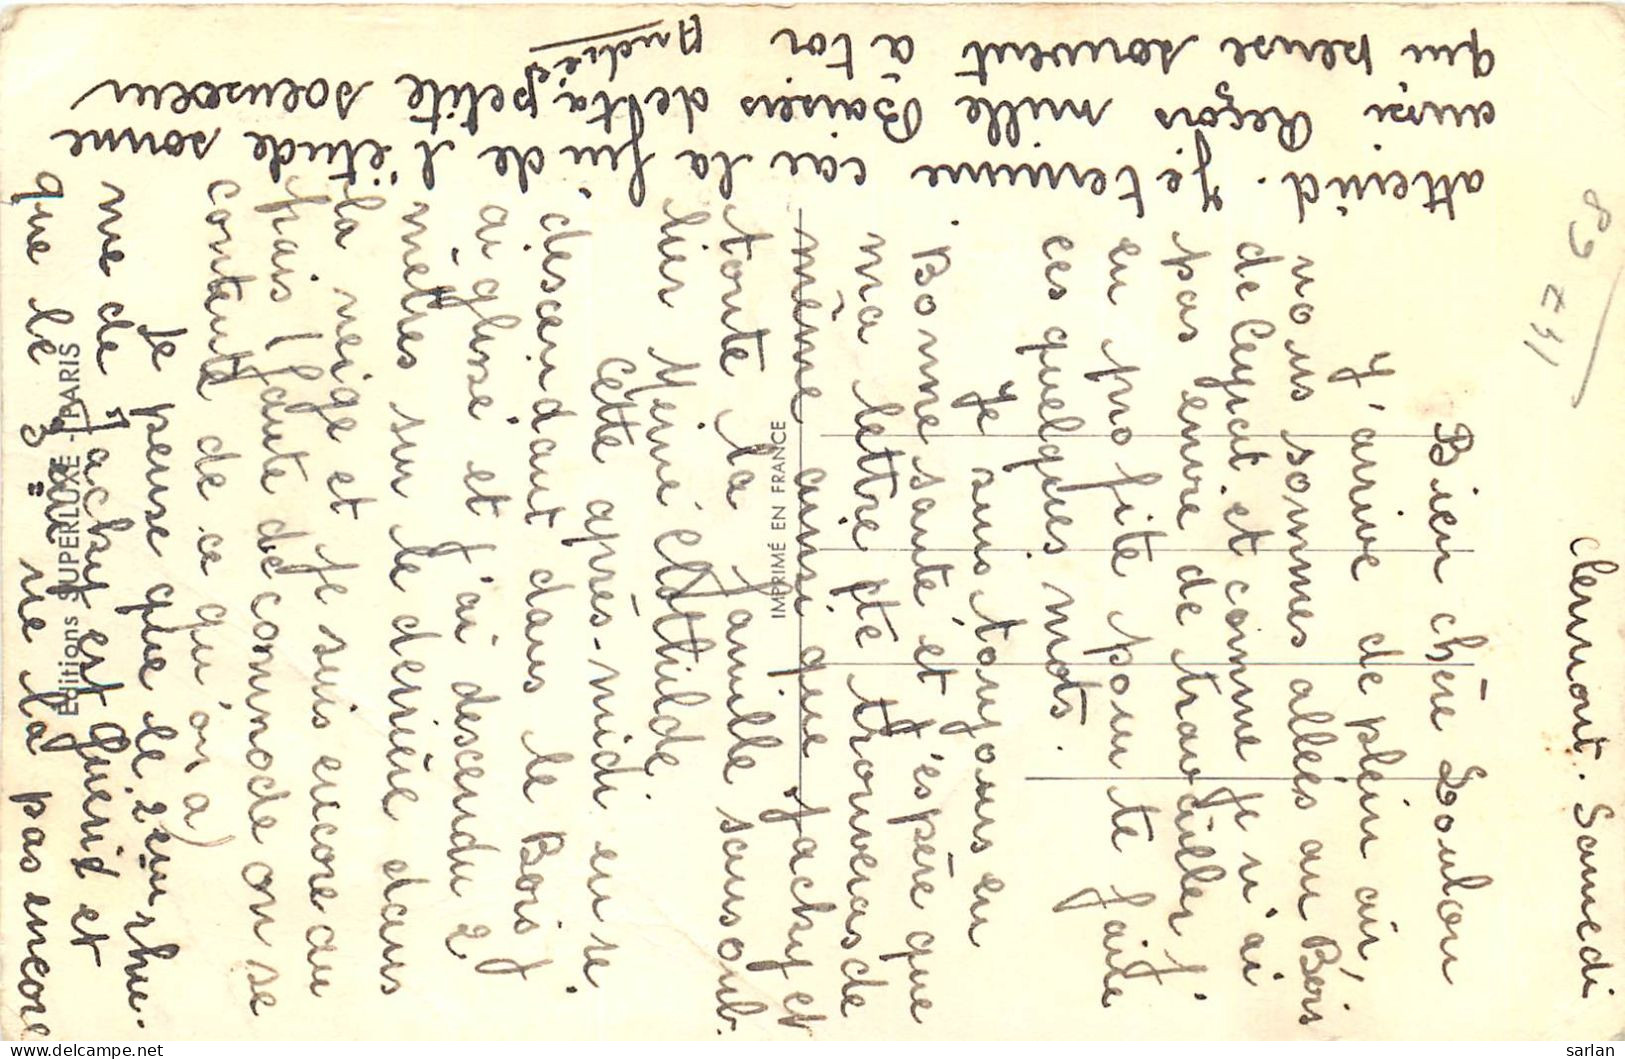 Clermont. Samedi
Bien chère Loulou
J'arrive de plein air,
nous sommes allés au Bois
de Ceyrat. et comme je n'ai
pas envie de travailler j'
en profite pour te faire
ces quelques mots.
Je suis toujours en
Bonne santé et j'espère que
ma lettre te trouveras de
même ainsi que Jacky et
toute la famille sans oub.
lier Mémé Clothilde.
Cette après-midi en se
descendant dans le Bois j'
ai glissé et j'ai descendu 2
mètres sur le derrière dans
la neige et je suis encore au
pais (faute de commode on se
contente de ce qu'on a)
Je pense que le 2eim rhu-
me de Jacky est guerit et
que le 3 ne la pas encore
atteind. Je termine car la fin de l'étude sonne
aussi Reçois mille Baisers de ta petite soeusoeur
qui pense souvent à toi
Andrée
Editions SUPERLUXE - PARIS
IMPRIMÉ EN FRANCE
sarlan